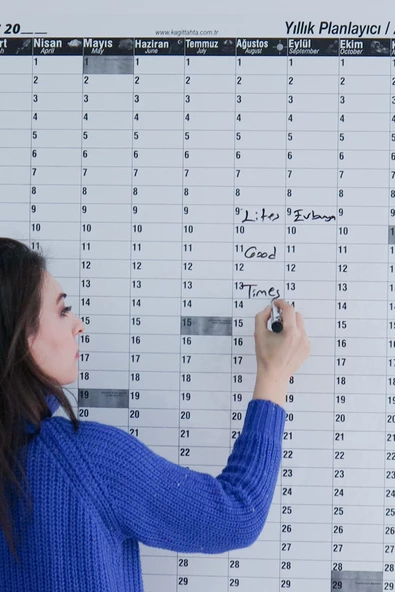 20__
www.kagittahta.com.tr
Yıllık Planlayıcı /
Nisan Mayıs Haziran Temmuz Ağustos Eylül Ekim
April May June July August September October
1 1 1 1 1 1 1
2 2 2 2 2 2 2
3 3 3 3 3 3 3
4 4 4 4 4 4 4
5 5 5 5 5 5 5
6 6 6 6 6 6 6
7 7 7 7 7 7 7
8 8 8 8 8 8 8
9 9 9 9 9 Lites 9 9
10 10 10 10 10 10 10
11 11 11 11 11 Good 11 11
12 12 12 12 12 12 12
13 13 13 13 Times 13 13
14 14 14 14 14 14
15 15 15 15 15 15
16 16 16 16 16
17 17 17 17 17
18 18 18 18 18
19 19 19 19 19
20 20 20 20 20
21 21 21 21 21
22 22 22
23 23
24 24
25 25
26 26
27 27
28 28 28 28
29 29 29 29